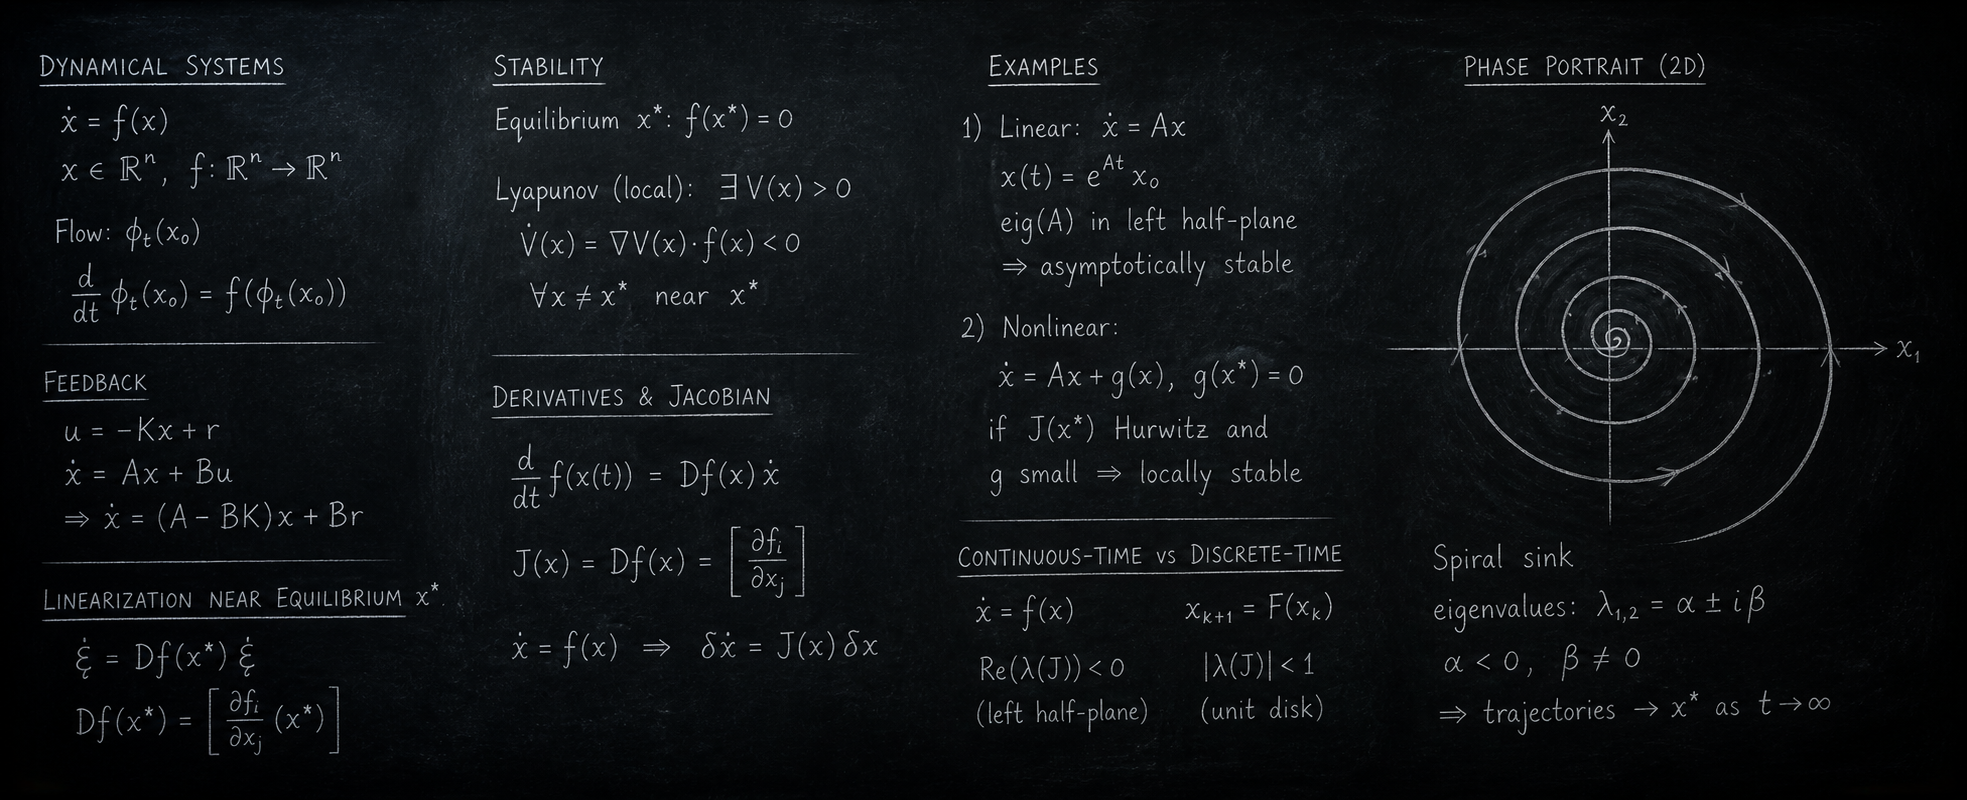 DYNAMICAL SYSTEMS
ẋ = f(x)
x ∈ ℝⁿ, f: ℝⁿ → ℝⁿ
Flow: ϕₜ(x₀)
d/dt ϕₜ(x₀) = f(ϕₜ(x₀))
FEEDBACK
u = −Kx + r
ẋ = Ax + Bu
⇒ ẋ = (A − BK)x + Br
LINEARIZATION NEAR EQUILIBRIUM x*.
ξ̇ = Df(x*) ξ̇
Df(x*) = [∂fᵢ/∂xⱼ (x*)]
STABILITY
Equilibrium x*: f(x*) = 0
Lyapunov (local): ∃ V(x) > 0
V̇(x) = ∇V(x)·f(x) < 0
∀x ≠ x* near x*
DERIVATIVES & JACOBIAN
d/dt f(x(t)) = Df(x) ẋ
J(x) = Df(x) = [∂fᵢ/∂xⱼ]
ẋ = f(x) ⇒ δẋ = J(x) δx
EXAMPLES
1) Linear: ẋ = Ax
x(t) = e^{At} x₀
eig(A) in left half-plane
⇒ asymptotically stable
2) Nonlinear:
ẋ = Ax + g(x), g(x*) = 0
if J(x*) Hurwitz and
g small ⇒ locally stable
CONTINUOUS-TIME VS DISCRETE-TIME
ẋ = f(x) xₖ₊₁ = F(xₖ)
Re(λ(J)) < 0 |λ(J)| < 1
(left half-plane) (unit disk)
PHASE PORTRAIT (2D)
x₂
x₁
Spiral sink
eigenvalues: λ₁,₂ = α ± iβ
α < 0, β ≠ 0
⇒ trajectories → x* as t → ∞